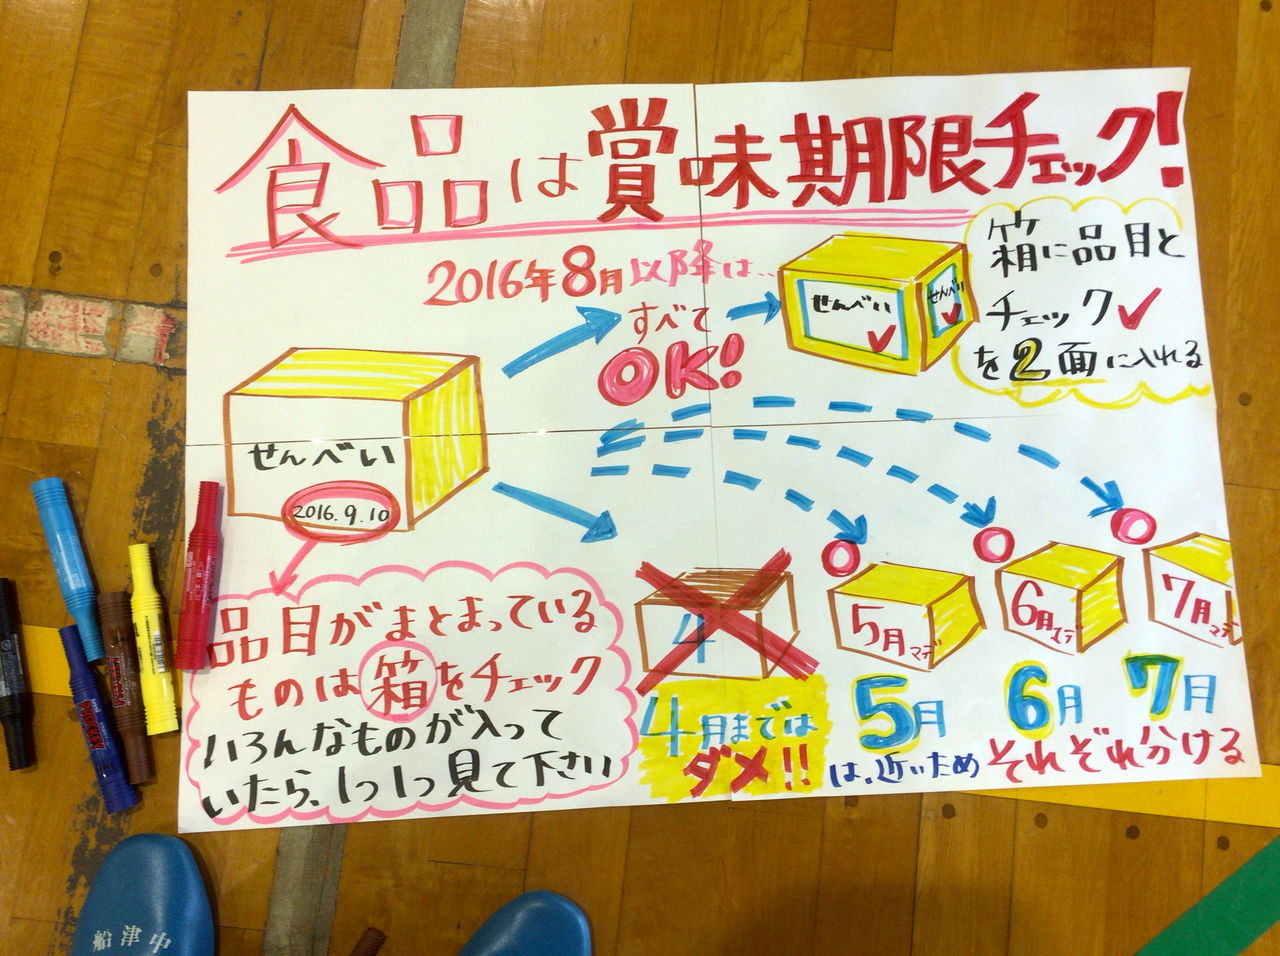 食品は賞味期限チェック!
2016年8月以降は..
すべて
OK!
せんべい
せんべい
箱に品目と
チェック✓
を2面に入れる
せんべい
2016.9.10
品目がまとまっている
ものは箱をチェック
いろんなものが入って
いたら、1つ1つ見て下さい
4
5月マデ
6月マデ
7月マデ
4月までは
ダメ!!
5月 6月 7月
は、近いため それぞれ分ける
船津中